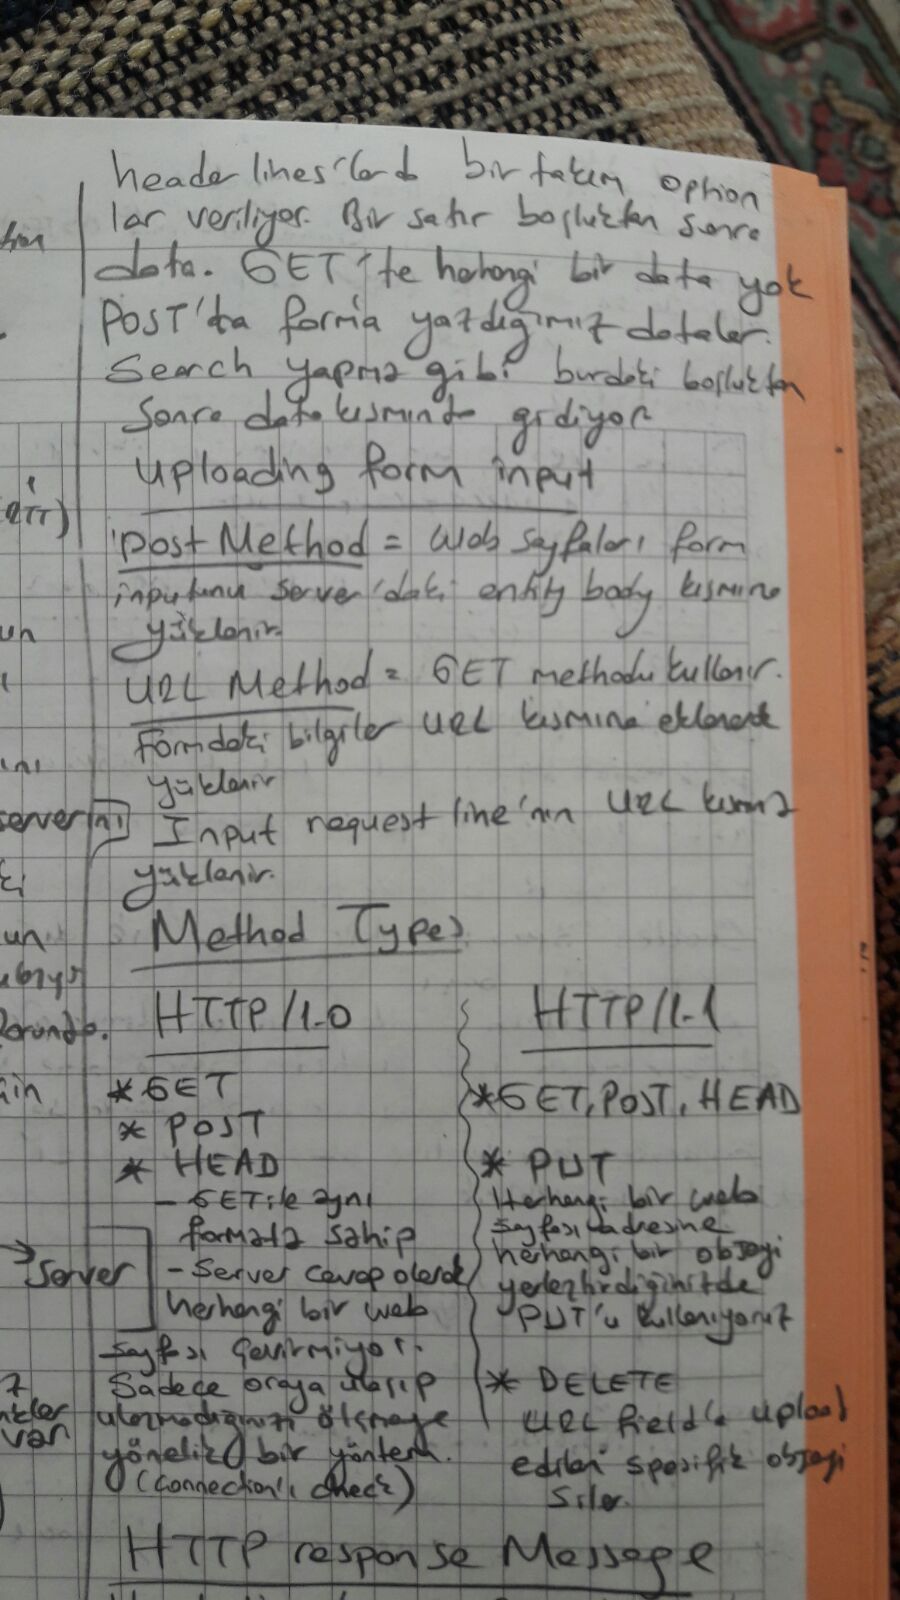 header lines'larda bir takım option
lar veriliyor. Bir satır boşluktan sonra
data. GET'te herhangi bir data yok
POST'ta form'a yazdığımız datalar.
Search yapma gibi burdaki boşluktan
sonra data kısmında gidiyor
Uploading form input
Post Method = Web sayfaları form
inputunu server'daki entity body kısmına
yüklenir.
URL Method = GET methodu kullanır.
Formdaki bilgiler URL kısmına eklenerek
yüklenir
server
Input request line'nın URL kısmına
yüklenir.
Method Types
HTTP/1.0
* GET
* POST
* HEAD
- GET ile aynı
formata sahip
Server
- Server cevap olarak
herhangi bir web
sayfası çevirmiyor.
Sadece oraya ulaşıp
ulaşmadığınızı ölçmeye
yönelik bir yöntem.
(Connection'ı check)
HTTP/1.1
* GET, POST, HEAD
* PUT
Herhangi bir web
sayfası adresine
herhangi bir objeyi
yerleştirdiğinizde
PUT'u kullanıyoruz
* DELETE
URL field'a upload
edilen spesifik objeyi
siler.
HTTP response Message